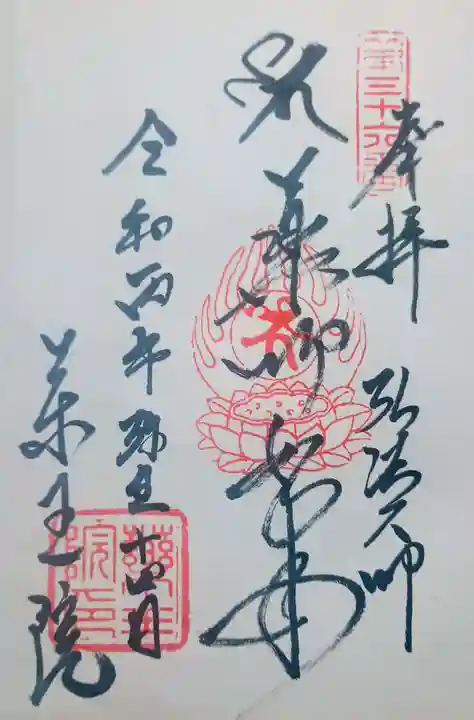 第三十六番
奉拝 弘法大師
薬師如来
令和丙午 弥生 十四日
薬王院
薬王院印